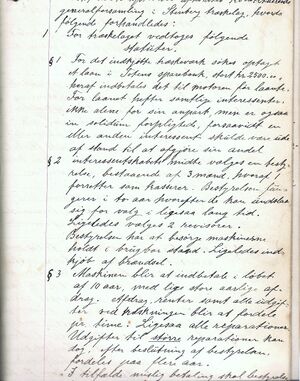 generalforsamling i Stenberg træskelag, hvorde
følgende forhandledes:
1 For træskelaget vedtages følgende
statuter.
§ 1 For det indkjøbte træskeværk søkes optaget
et laan i Totens sparebank, stort kr 2300.00,
hvoraf indbetales det til motoren før laante.
For laanet hefter samtlige interessenter
ikke alene for sin anpart men er ogsaa
in solidum forpligtede, forsaavidt en
eller anden interessent skulde være ude
af stand til at afgjøre sin andel
§ 2 interessentskabets midte vælges en besty-
relse, bestaaende af 3 mænd, hvoraf 1
forretter som kasserer. Bestyrelsen fun-
gerer i to aar hvorefter de kan undslaa
sig for valg i ligesaa lang tid.
Ligeledes vælges 2 revisorer.
Bestyrelsen har at besørge maskinerne
holdt i brugbar stand. Ligeledes ind-
kjøb af brændsel.
§ 3 Maskinen blir at indbetale i løbet
af 10 aar, med lige store aarlige af-
drag. Afdrag, renter samt alle udgif-
ter ved træskningen blir at fordele
pr time. Ligesaa alle reparationer
Udgifter til større reparationer kan
dog, efter beslutning af bestyrelsen
fordeles paa flere aar.
I tilfælde mislig betaling skal bestyrelsen